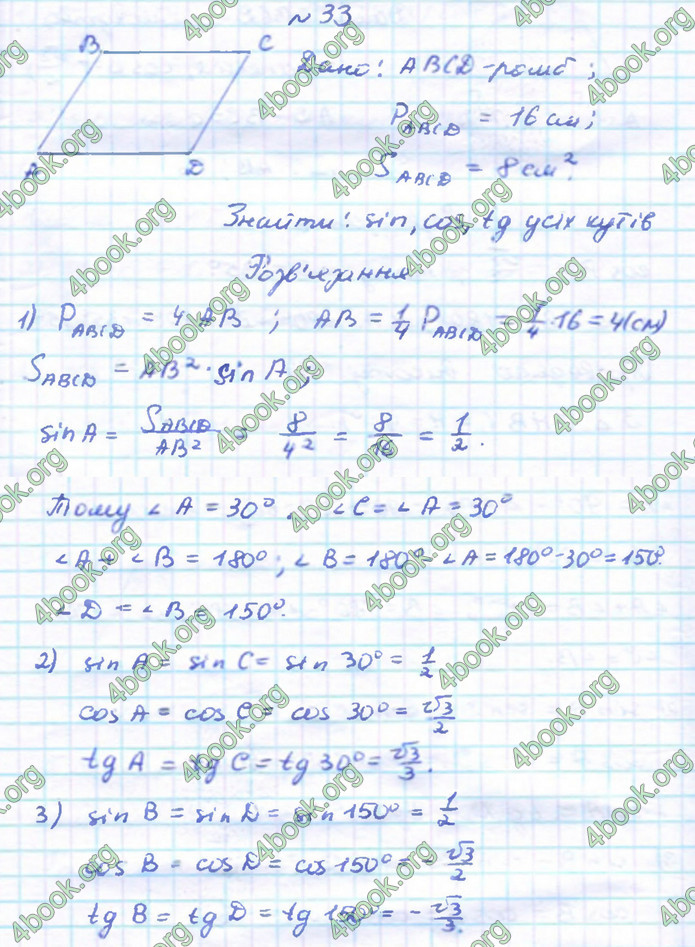 № 33
B C
A D
Дано: ABCD - ромб;
P_ABCD = 16 см;
S_ABCD = 8 см².
Знайти: sin, cos, tg усіх кутів
Розв'язання
1) P_ABCD = 4 AB ; AB = 1/4 P_ABCD = 1/4 · 16 = 4 (см)
S_ABCD = AB² · sin A ;
sin A = S_ABCD / AB² = 8/4² = 8/16 = 1/2.
Тому ∠ A = 30°. ∠ C = ∠ A = 30°
∠ A + ∠ B = 180° ; ∠ B = 180° - ∠ A = 180° - 30° = 150°.
∠ D = ∠ B = 150°.
2) sin A = sin C = sin 30° = 1/2
cos A = cos C = cos 30° = √3/2
tg A = tg C = tg 30° = √3/3.
3) sin B = sin D = sin 150° = 1/2
cos B = cos D = cos 150° = - √3/2
tg B = tg D = tg 150° = - √3/3.
4book.org